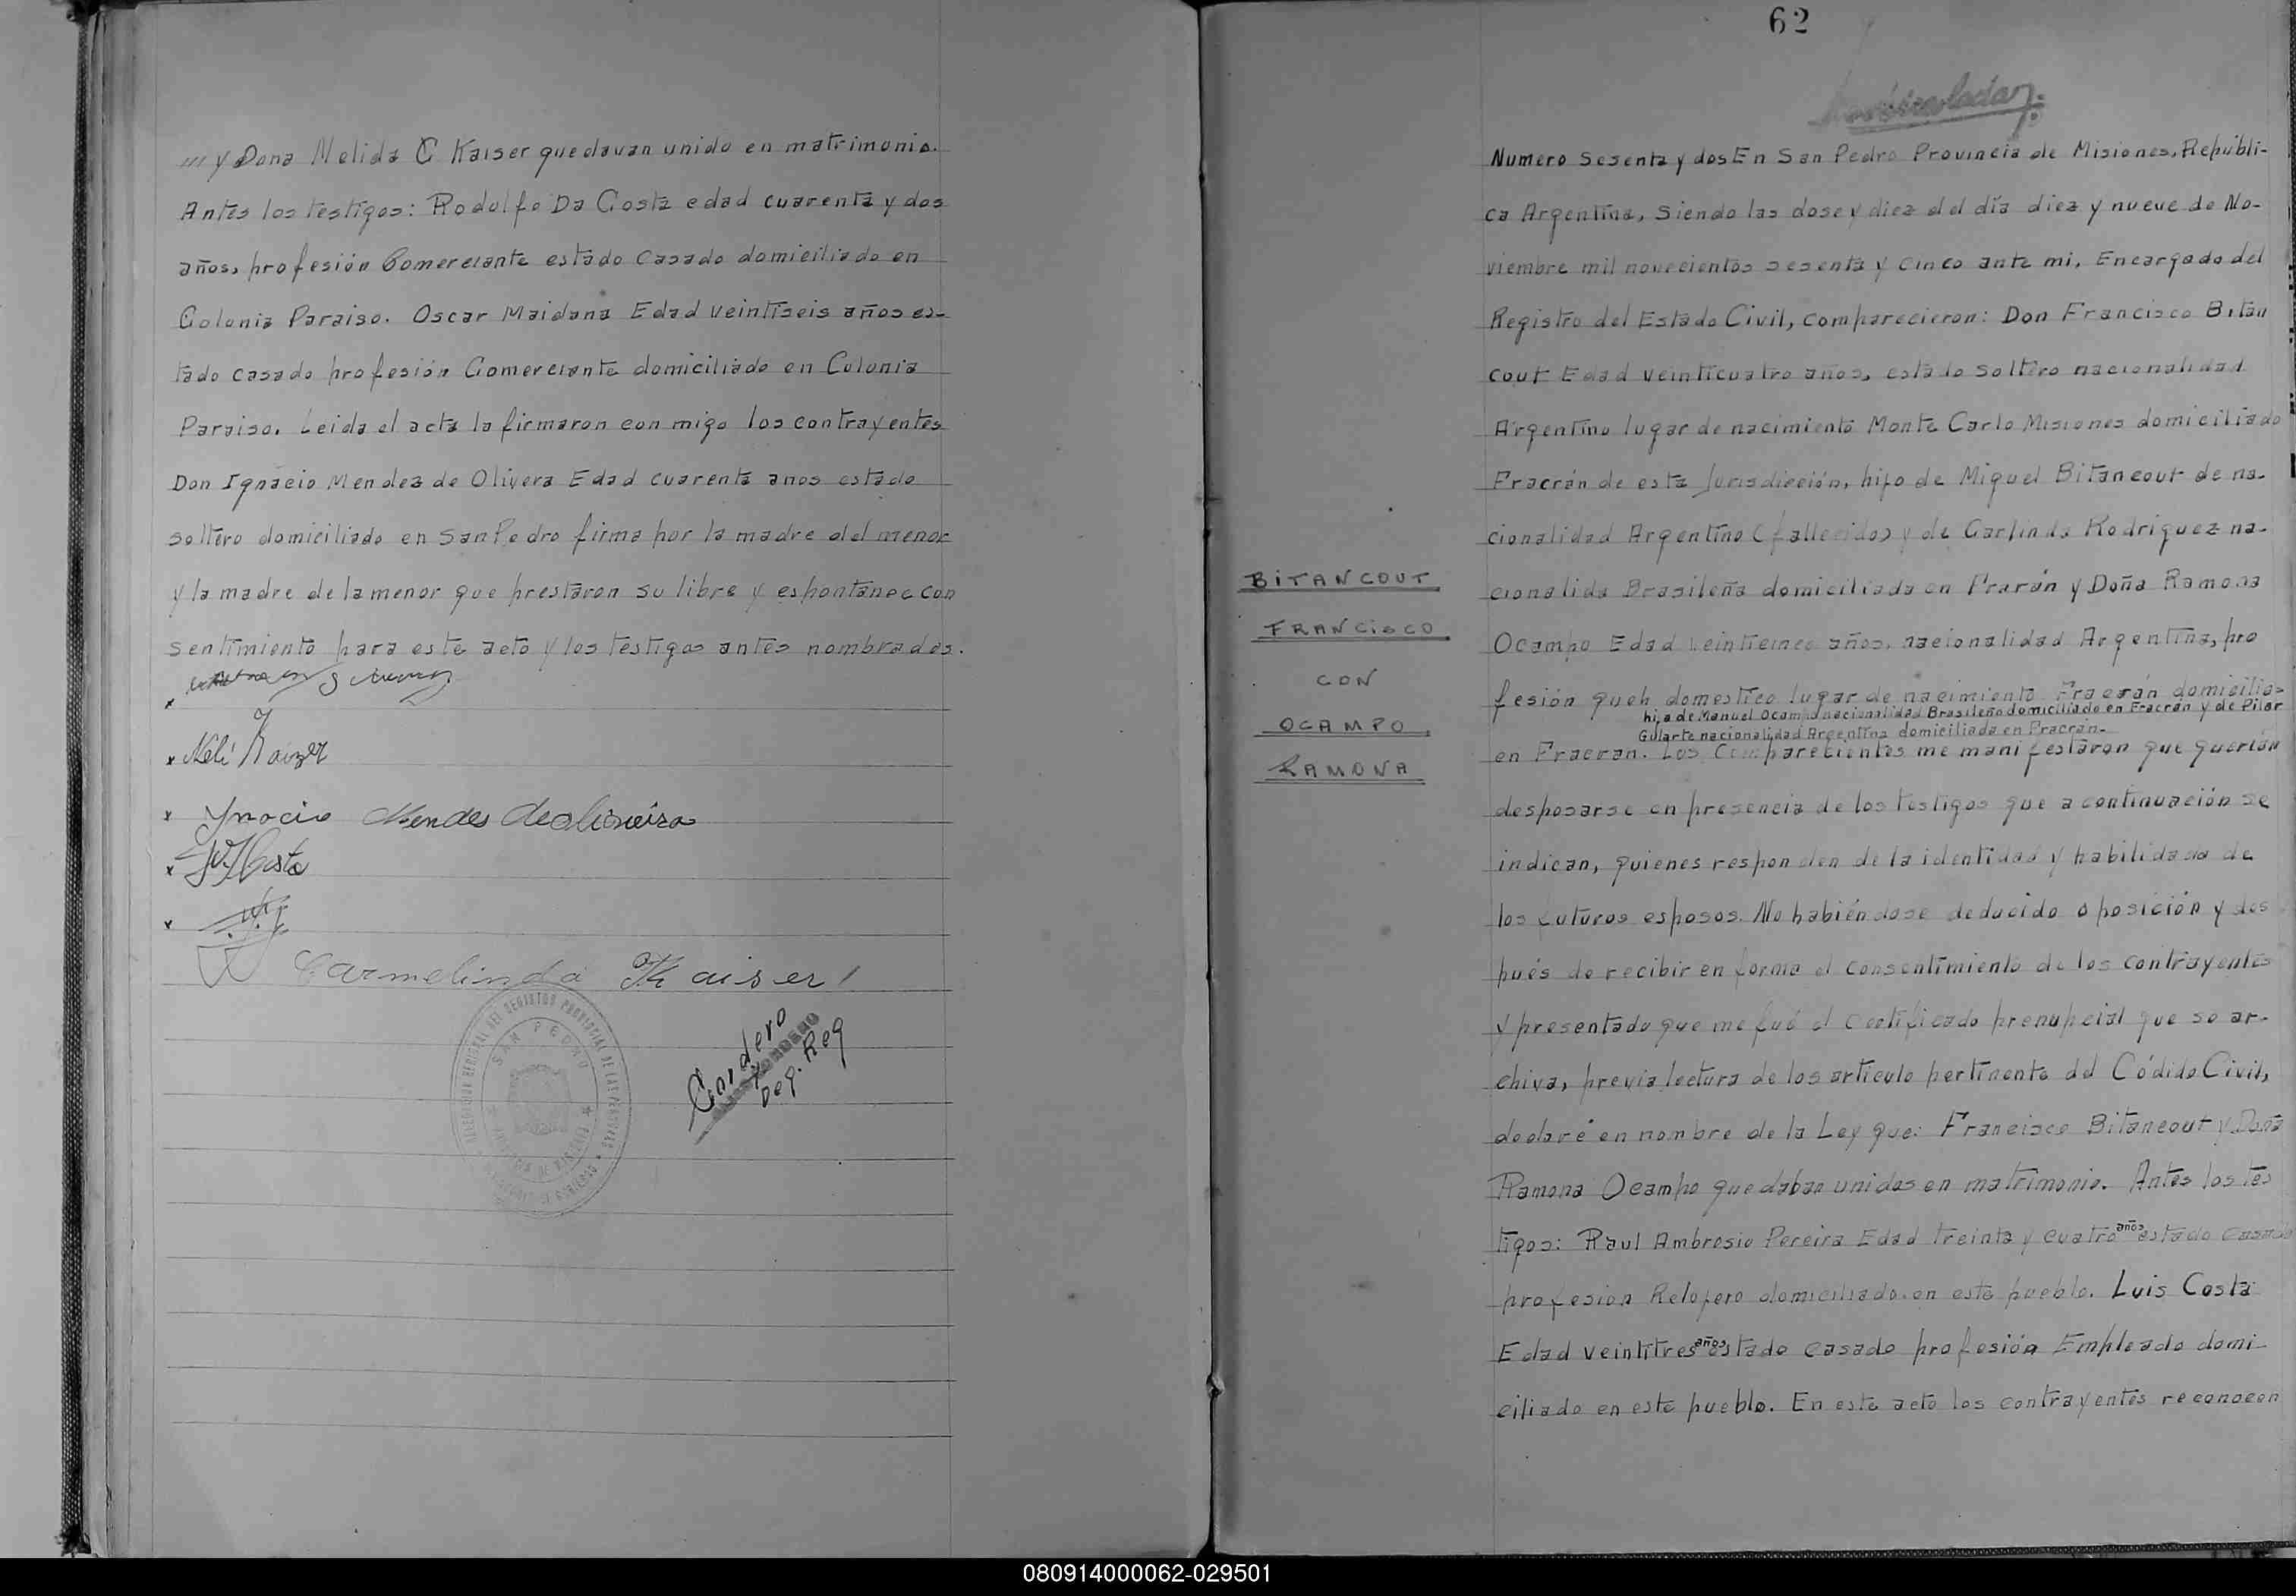 /// y Dona Nelida C Kaiser quedavan unido en matrimonio.
Antes los testigos: Rodolfo Da Costa edad cuarenta y dos
años, profesión Comerciante estado Casado domiciliado en
Colonia Paraiso. Oscar Maidana Edad veintiseis años es-
tado casado profesión Comerciante domiciliado en Colonia
Paraiso. Leida el acta la firmaron con migo los contrayentes
Don Ignacio Mendez de Olivera Edad cuarenta anos estado
soltero domiciliado en San Pedro firma por la madre del menor
y la madre de la menor que prestaron su libre y espontanoe con
sentimiento para este acto y los testigos antes nombrados.
x
x Neli Kaizer
x Ynacio Mendes de oliveira
x Costa
x
Carmelinda Kaiser
SAN PEDRO
Cordero
Deg. Reg
62
Numero Sesenta y dos En San Pedro Provincia de Misiones, Republi-
ca Argentina, Siendo las dose y diez del día diez y nueve de No-
viembre mil novecientos sesenta y cinco ante mi, Encargado del
Registro del Estado Civil, comparecieron: Don Francisco Bitan
cout Edad veinticuatro años, estado soltero nacionalidad
Argentino lugar de nacimiento Monte Carlo Misiones domiciliado
Fracrán de esta Jurisdicción, hijo de Miguel Bitancout de na-
cionalidad Argentino (fallecido) y de Carlinda Rodriguez na-
cionalida Brasileña domiciliada en Frarán y Doña Ramona
Ocampo Edad veinticinco años, nacionalidad Argentina, pro
fesión queh domestico lugar de nacimiento Fracrán domicilia-
hija de Manuel Ocampo nacionalidad Brasileño domiciliado en Fracrán y de Pilar
Gularte nacionalidad Argentina domiciliada en Fracrán.-
en Fracran. Los Comparecientes me manifestaron que querian
desposarse en presencia de los testigos que a continuación se
indican, quienes responden de la identidad y habilidada de
los futuros esposos. No habiéndose deducido oposición y des
pués de recibir en forma el consentimiento de los contrayentes
y presentado que me fué el certificado prenupcial que se ar-
chiva, previa lectura de los articulo pertinente del Códido Civil,
declaré en nombre de la Ley que: Francisco Bitancout y Doña
Ramona Ocampo quedaban unidos en matrimonio. Antes los tes
tigos: Raul Ambrosio Pereira Edad treinta y cuatro años estado casado
profesion Relojero domiciliado en este pueblo. Luis Costa
Edad veintitres años estado casado profesión Empleado domi-
ciliado en este pueblo. En este acto los contrayentes reconocen
BITANCOUT
FRANCISCO
CON
OCAMPO
RAMONA
080914000062-029501